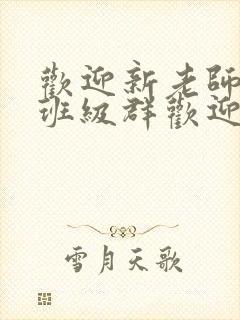 歡迎新老師
班級群歡迎
雪月天歌